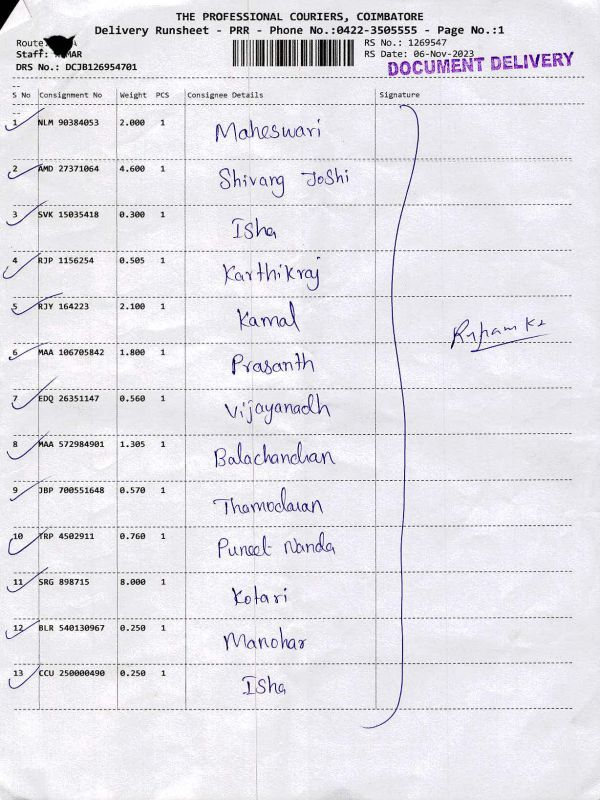 THE PROFESSIONAL COURIERS, COIMBATORE
Delivery Runsheet - PRR - Phone No.:0422-3505555 - Page No.:1
Route: A RS No.: 1269547
Staff: MAR RS Date: 06-Nov-2023
DRS No.: DCJB126954701 DOCUMENT DELIVERY
S No Consignment No Weight PCS Consignee Details Signature
1 NLM 90384053 2.000 1 Maheswari
2 AMD 27371064 4.600 1 Shivang Joshi
3 SVK 15035418 0.300 1 Isha
4 RJP 1156254 0.505 1 Karthikraj
5 RJY 164223 2.100 1 Kamal
6 MAA 106705842 1.800 1 Prasanth
7 EDQ 26351147 0.560 1 Vijayanadh
8 MAA 572984901 1.305 1 Balachandran
9 JBP 700551648 0.570 1 Thamodaran
10 TRP 4502911 0.760 1 Puneet Nanda
11 SRG 898715 8.000 1 Kotari
12 BLR 540130967 0.250 1 Manohar
13 CCU 250000490 0.250 1 Isha